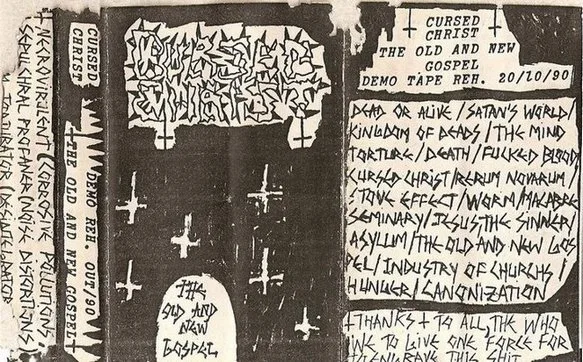 † NECROVIRULENT (CORROSIVE POLLUTIONS,
SEPULCHRAL PROFANER (NOISE DISTORTIONS)
CURSED
CHRIST
† DEMO REH. OUT/90
† THE OLD AND NEW GOSPEL †
CURSED
CHRIST
THE
OLD AND
NEW
GOSPEL
† CURSED †
CHRIST
THE OLD AND NEW
GOSPEL
DEMO TAPE REH. 20/10/90
DEAD OR ALIVE/SATAN'S WORLD/
KINGDOM OF DEADS/THE MIND
TORTURE/DEATH/FUCKED BLOOD/
CURSED CHRIST/RERUM NOVARUM/
STOVE EFFECT/WORM/MACABRE
SEMINARY/JESUS, THE SINNER/
ASYLUM/THE OLD AND NEW GOS
PEL/INDUSTRY OF CHURCHS/
HUNGER/CANONIZATION
† THANKS † TO ALL, THE WHO
WE TO LIVE ONE FORCE FOR